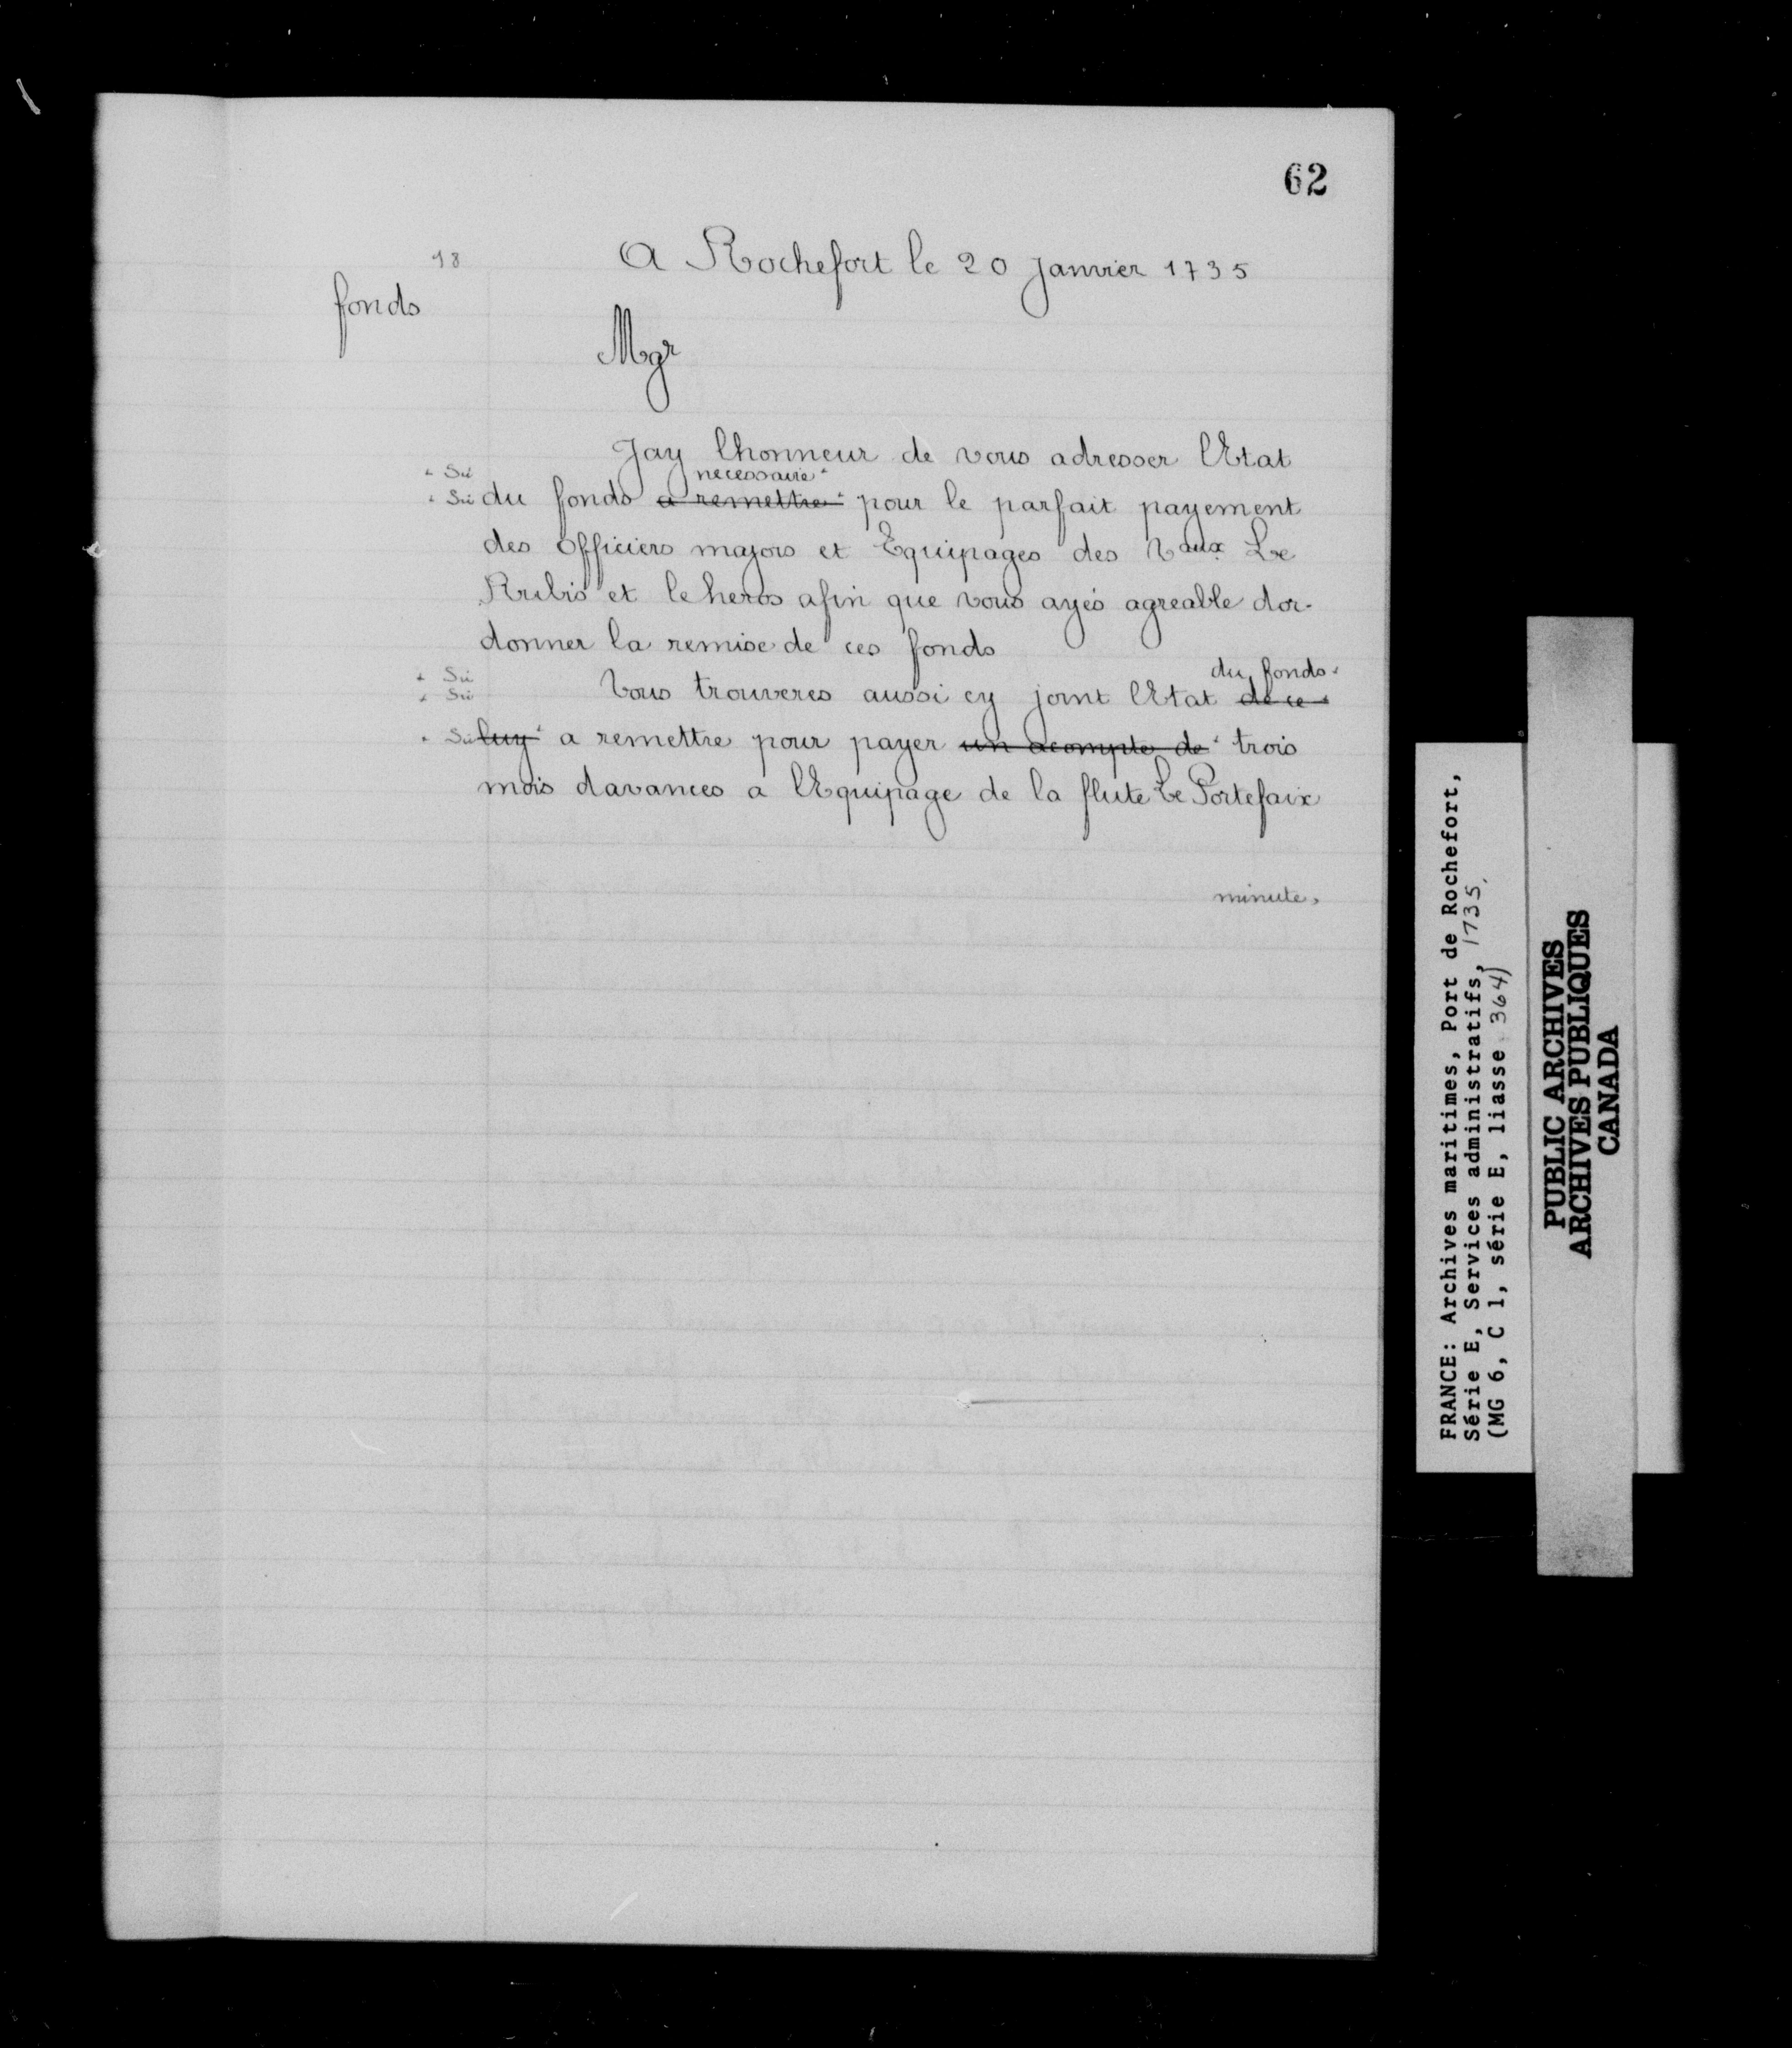 62
18
A Rochefort le 20 janvier 1735
fonds
Mgr
Jay lhonneur de vous adresser lEtat
+ Sic
necessaire +
+ Sic du fonds a remettre + pour le parfait payement
des officiers majors et Equipages des Vaux Le
Rubis et le heros afin que vous ayés agreable dor-
donner la remise de ces fonds
+ Sic
du fonds +
+ Sic
Vous trouveres aussi cy joint lEtat de ce +
+ Sic luy + a remettre pour payer un acompte de + trois
mois davances a lEquipage de la flute Le Portefaix
minute.
FRANCE: Archives maritimes, Port de Rochefort,
Série E, Services administratifs, 1735.
(MG 6, C 1, série E, liasse 364)
PUBLIC ARCHIVES
ARCHIVES PUBLIQUES
CANADA